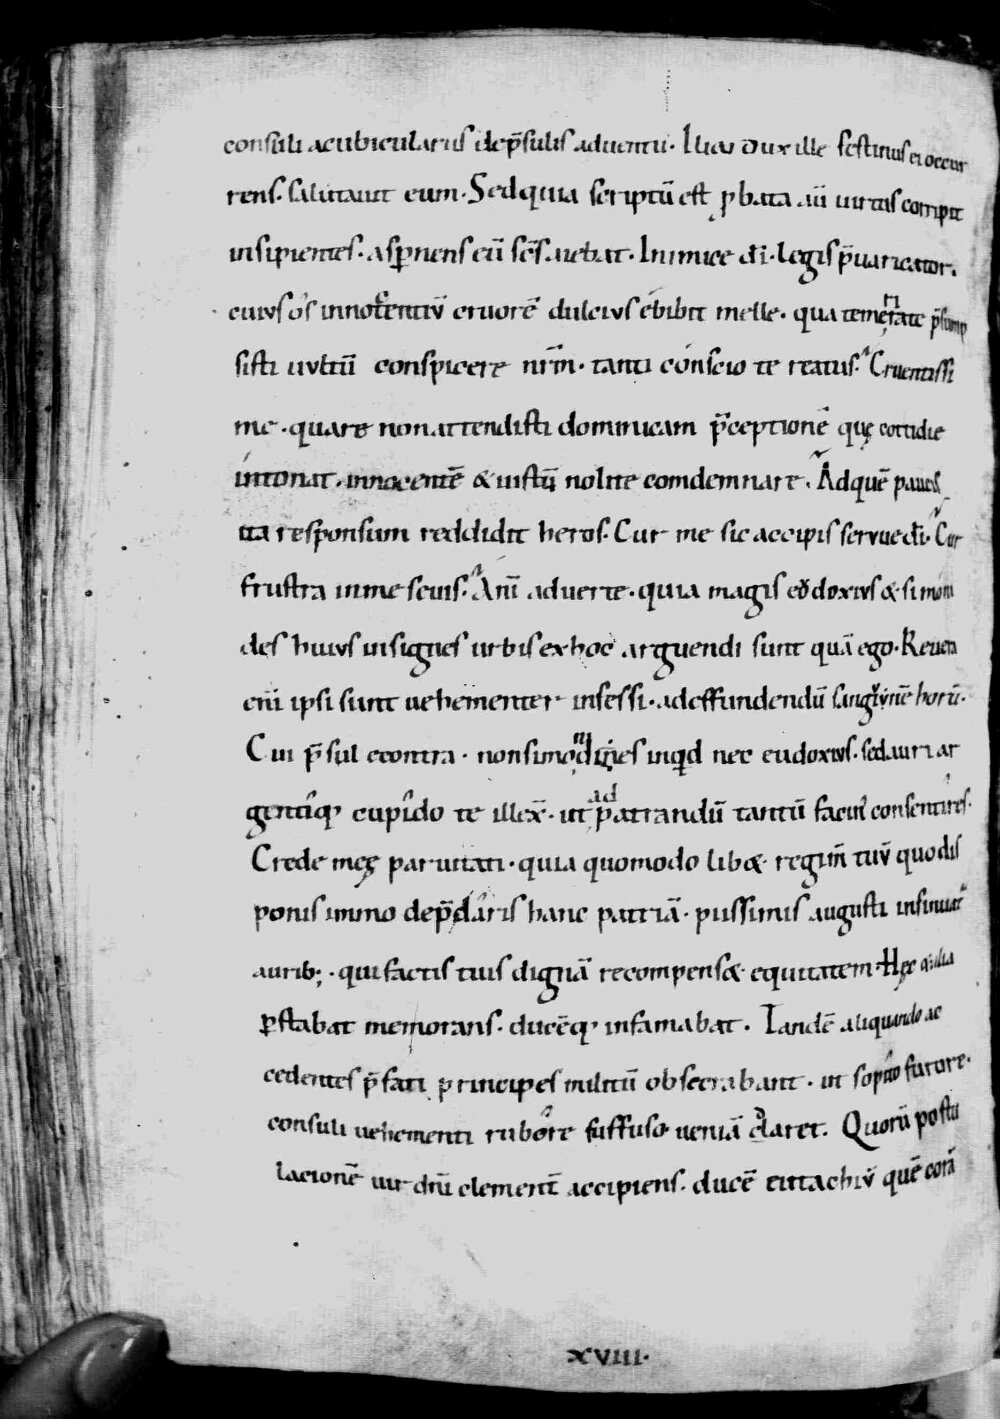 consuli a cubiculariis de p̄sulis aduentu. Iliaı dux ille festinus ei occur
rens. salutauit eum. Sed quia scriptū est ꝓbata aū uirtus corripit
insipientes. aspnens eū sc̄s. aiebat. Inimice dī. legis p̄uaricator.
cuius os innocentiū cruorē dulcius ebibit melle. qua temeritate p̄sump
sisti uultū conspicere nr̄m. tanti conscio te reatus. Cruentissi
me. quare non attendisti dominicam p̄ceptionē quę cottidie
intonat. innocentē & iustū nolite comdemnare. Ad quē paucis
ita responsum reddidit heros. Cur me sic accipis serue dī. Cur
frustra in me seuis. Anī aduerte. quia magis eudoxius & simoni
des huius insignes urbis ex hoc arguendi sunt quā ego. Reuera
enī ipsi sunt uehementer insessi. ad effundendū sanguinē horū.
Cui p̄sul econtra. non simonides inqd nec eudoxius. sed auri ar
gentiq; cupido te illex̄. ut ad patrandū tantū facin' consentires.
Crede meę paruitati. quia quomodo lib& regim̄ tuū quo dis
ponis immo dep̄daris hanc patriā. piissimis augusti insinuat
aurib;. qui factis tuis dignā recompens& equitatem. Hęc & alia
ꝑstabat memorans. ducēq; infamabat. Tandē aliquando ac
cedentes p̄fati principes militū obsecrabant. ut sopito furore.
consuli uehementi rubore suffuso ueniā daret. Quorū postu
lacionē uir dn̄i clement̄ accipiens. ducē eutachiū quē corā
XVIII.